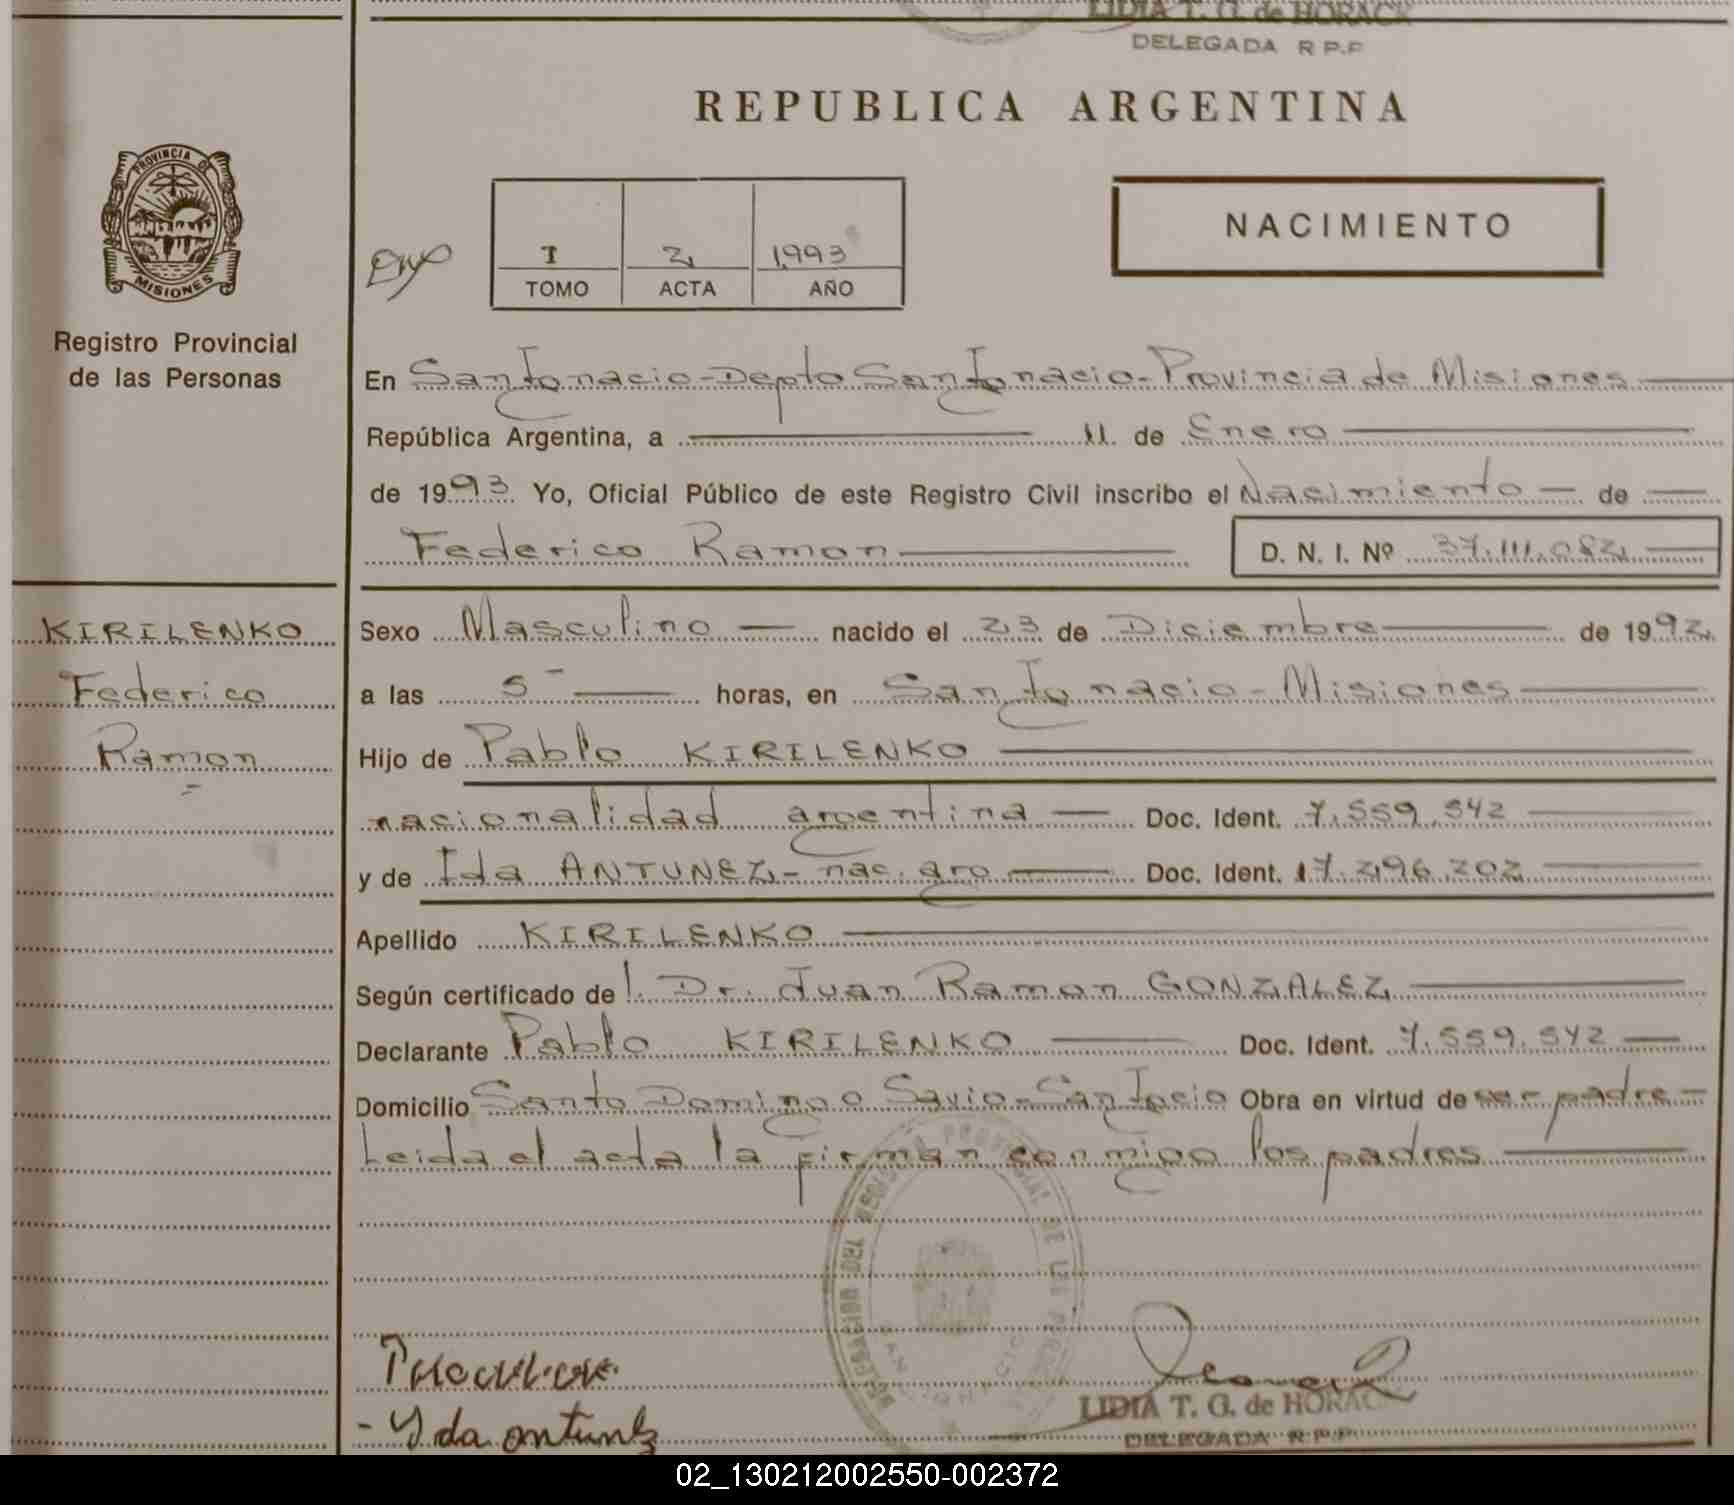 LIDIA T. G. de HORACK
DELEGADA R P.P
REPUBLICA ARGENTINA
PROVINCIA DE
MISIONES
Registro Provincial
de las Personas
NACIMIENTO
I 2 1993
TOMO ACTA AÑO
En San Ignacio - Depto San Ignacio - Provincia de Misiones
República Argentina, a 11 de Enero
de 1993 Yo, Oficial Público de este Registro Civil inscribo el Nacimiento de
Federico Ramon D. N. I. Nº 37.111.082
KIRILENKO
Federico
Ramon
Sexo Masculino nacido el 23 de Diciembre de 1992
a las 5 horas, en San Ignacio - Misiones
Hijo de Pablo KIRILENKO
nacionalidad argentina Doc. Ident. 7.559.542
y de Ida ANTUNEZ - nac. arg Doc. Ident. 17.296.202
Apellido KIRILENKO
Según certificado de l Dr. Juan Ramon GONZALEZ
Declarante Pablo KIRILENKO Doc. Ident. 7.559.542
Domicilio Santo Domingo Savio - San Igcio Obra en virtud de ser padre
Leida el acta la firman conmigo los padres
DELEGACION DEL REGISTRO PROVINCIAL DE LAS PERSONAS
SAN IGNACIO
- Yda antunez
LIDIA T. G. de HORACK
DELEGADA R.P.P.
02_130212002550-002372